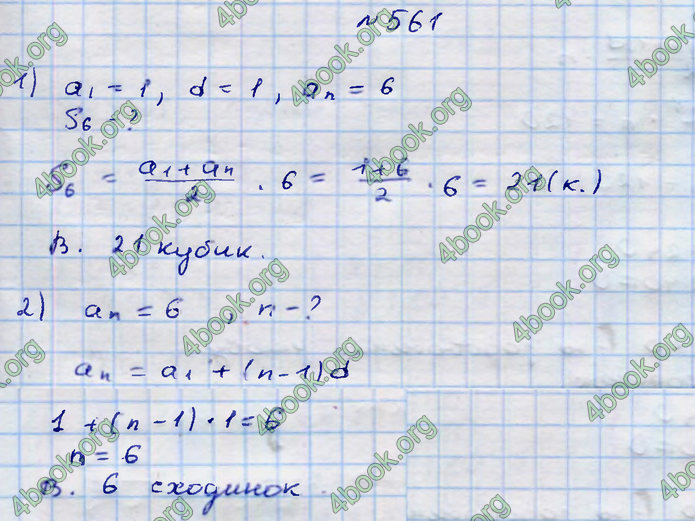 № 561
1) a₁ = 1, d = 1, aₙ = 6
S₆ - ?
S₆ = (a₁ + aₙ)/2 · 6 = (1 + 6)/2 · 6 = 21 (к.)
В. 21 кубик.
2) aₙ = 6, n - ?
aₙ = a₁ + (n - 1)d
1 + (n - 1) · 1 = 6
n = 6
В. 6 сходинок
4book.org